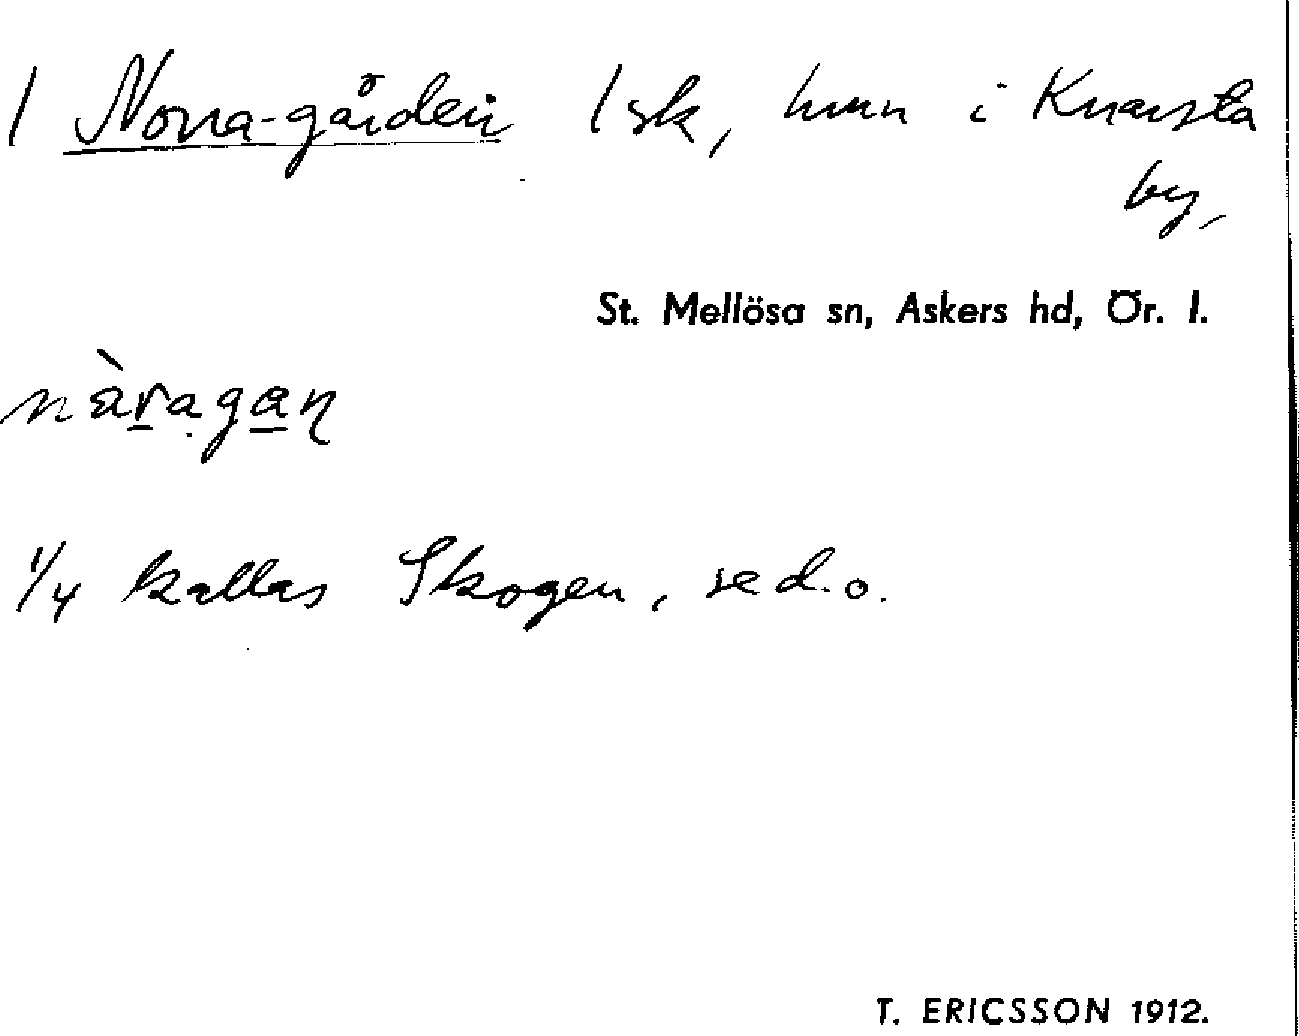 1 Norra-gården 1 sk, hmn i Knarsta
by,
St. Mellösa sn, Askers hd, Ör. l.
nàragan
1/4 kallas Skogen, se d.o.
T. ERICSSON 1912.